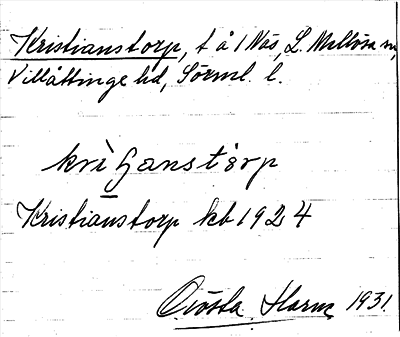 Kristianstorp, t å 1 Näs, L. Mellösa sn,
Villåttinge hd, Sörml. l.
kriʃanstórp
Kristianstorp kb 1924
Gösta Harm 1931.